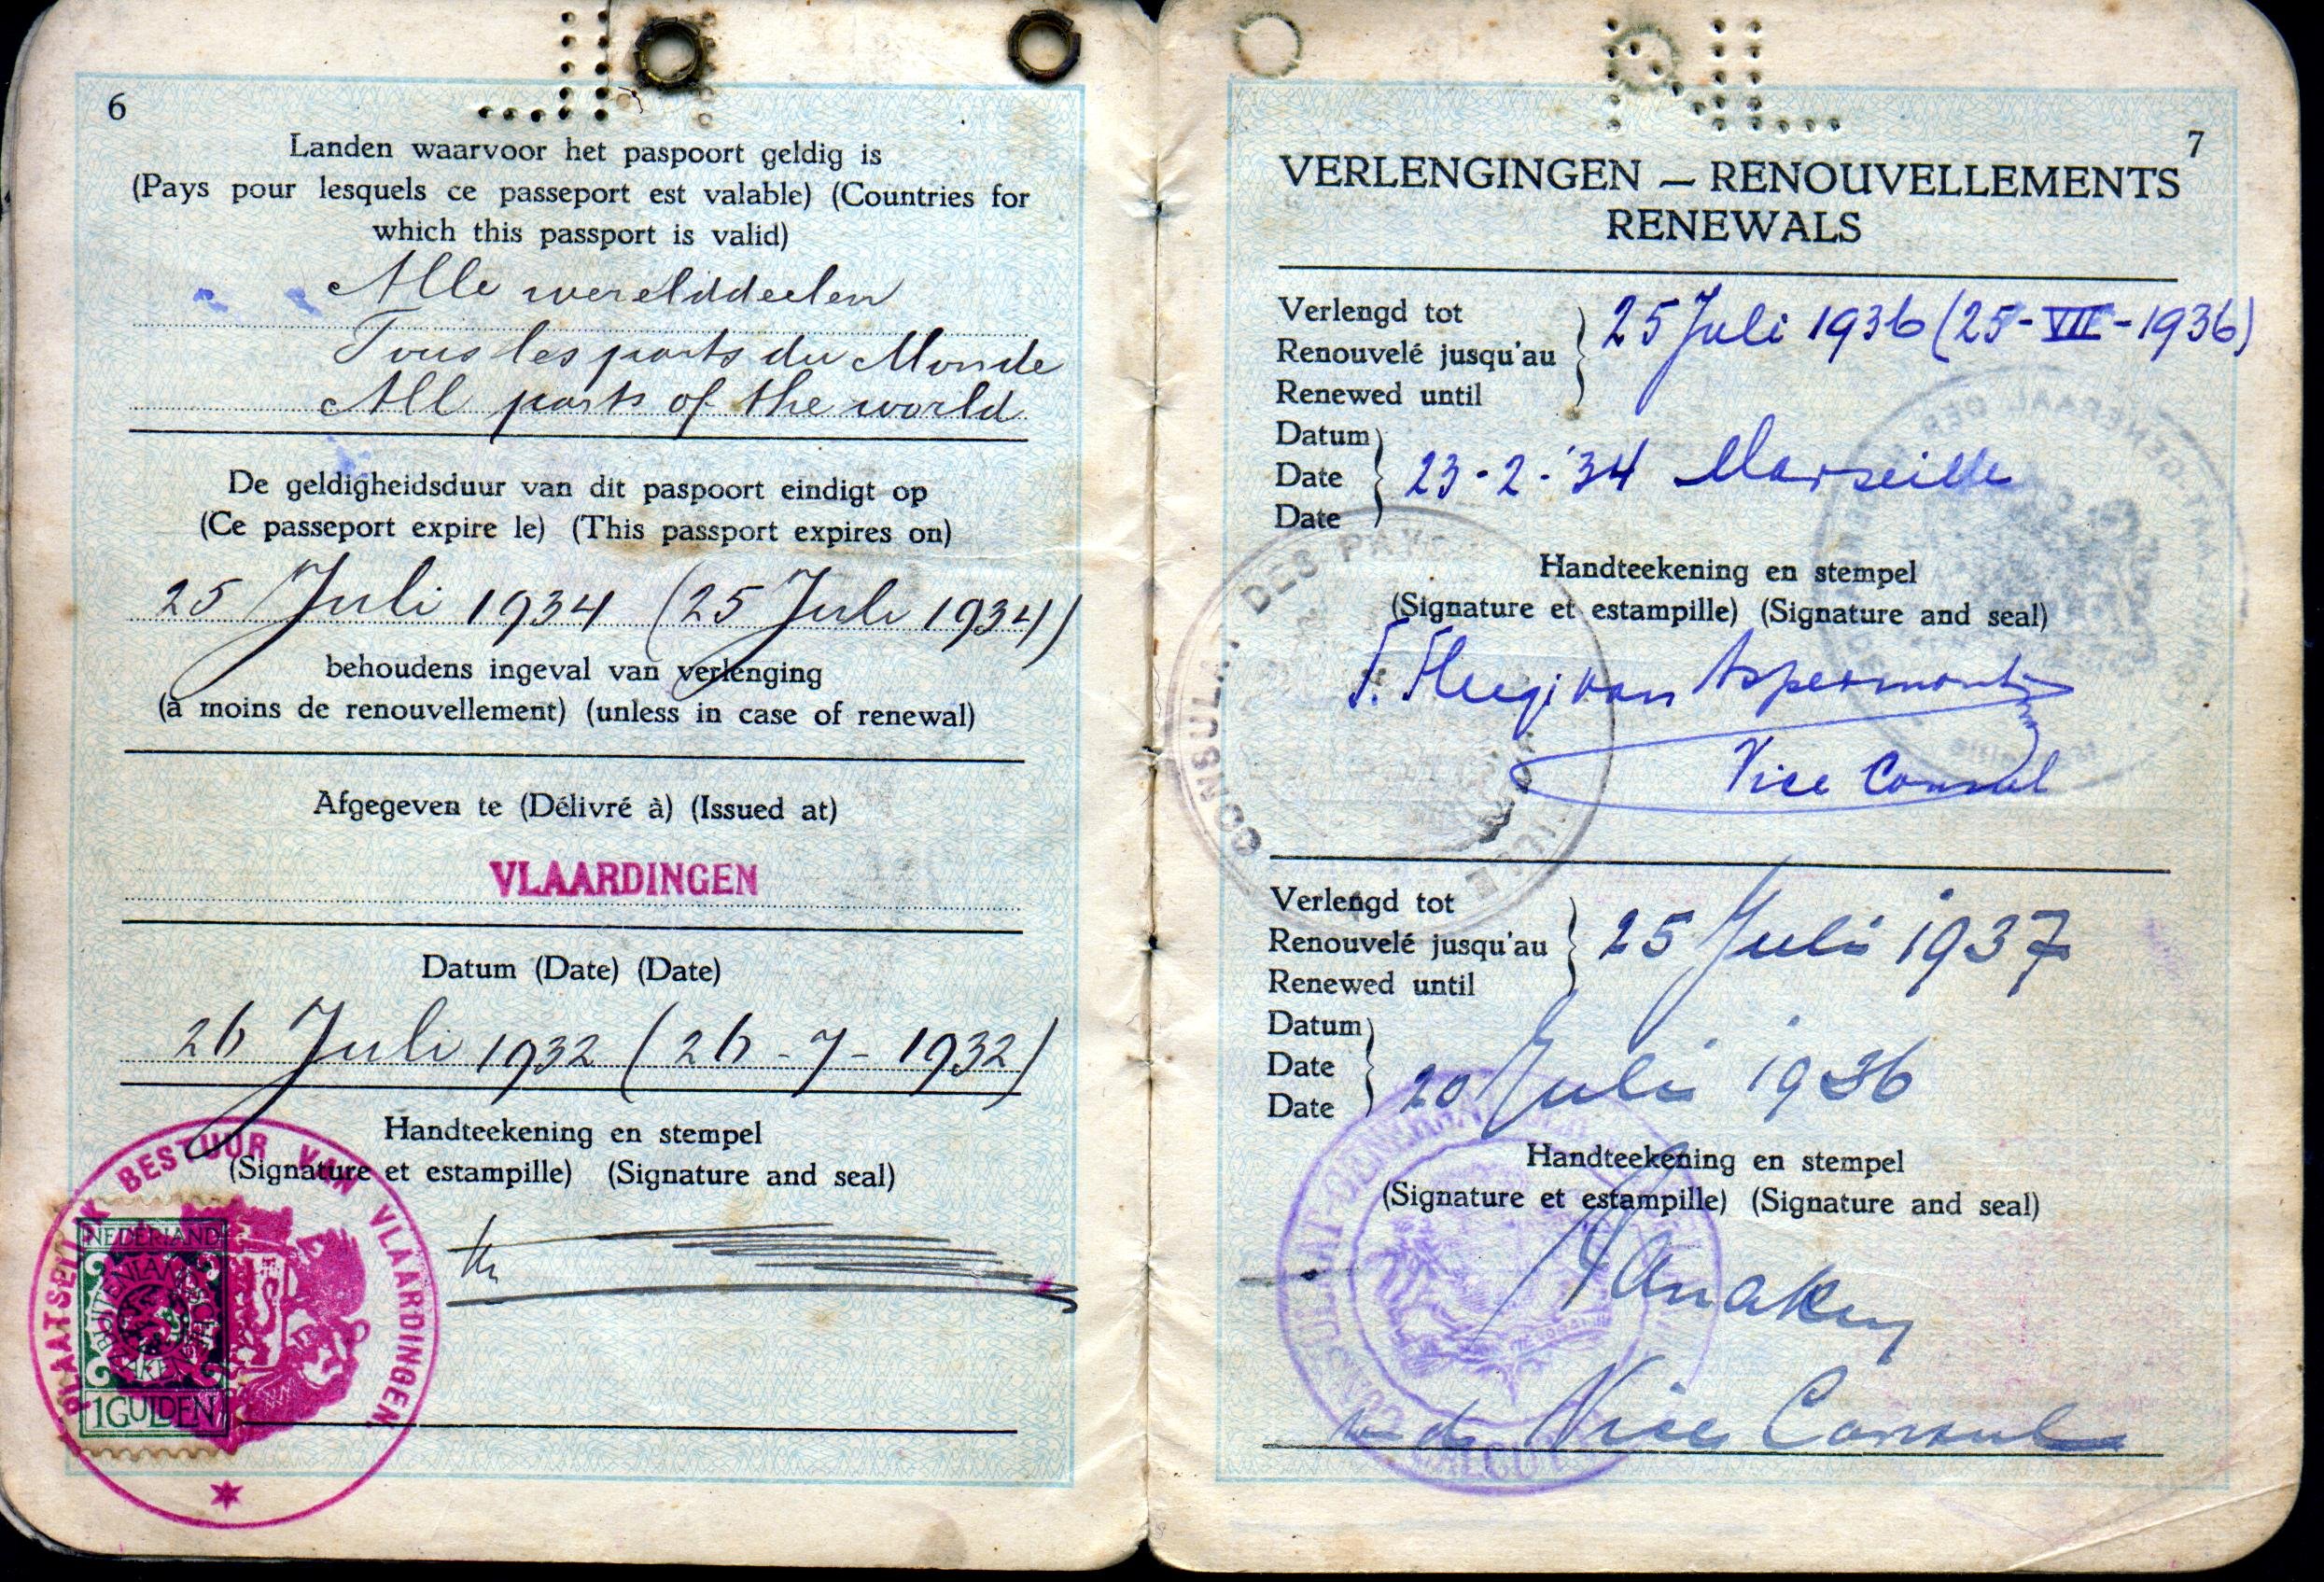 6
Landen waarvoor het paspoort geldig is
(Pays pour lesquels ce passeport est valable) (Countries for
which this passport is valid)
Alle werelddeelen
Tous les parts du Monde
All parts of the world
De geldigheidsduur van dit paspoort eindigt op
(Ce passeport expire le) (This passport expires on)
25 Juli 1934 (25 Juli 1934)
behoudens ingeval van verlenging
(à moins de renouvellement) (unless in case of renewal)
Afgegeven te (Délivré à) (Issued at)
VLAARDINGEN
Datum (Date) (Date)
26 Juli 1932 (26-7-1932)
Handteekening en stempel
(Signature et estampille) (Signature and seal)
PLAATSELIJK BESTUUR VAN VLAARDINGEN
NEDERLAND
BUITENLANDSCHE ZAKEN
1 GULDEN
7
VERLENGINGEN — RENOUVELLEMENTS
RENEWALS
Verlengd tot
Renouvelé jusqu'au
Renewed until
25 Juli 1936 (25-VII-1936)
Datum
Date
Date
23-2-'34 Marseille
Handteekening en stempel
(Signature et estampille) (Signature and seal)
van Aspermont
Vice Consul
CONSULAT DES PAYS
Verlengd tot
Renouvelé jusqu'au
Renewed until
25 Juli 1937
Datum
Date
Date
20 Juli 1936
Handteekening en stempel
(Signature et estampille) (Signature and seal)
Vice Consul